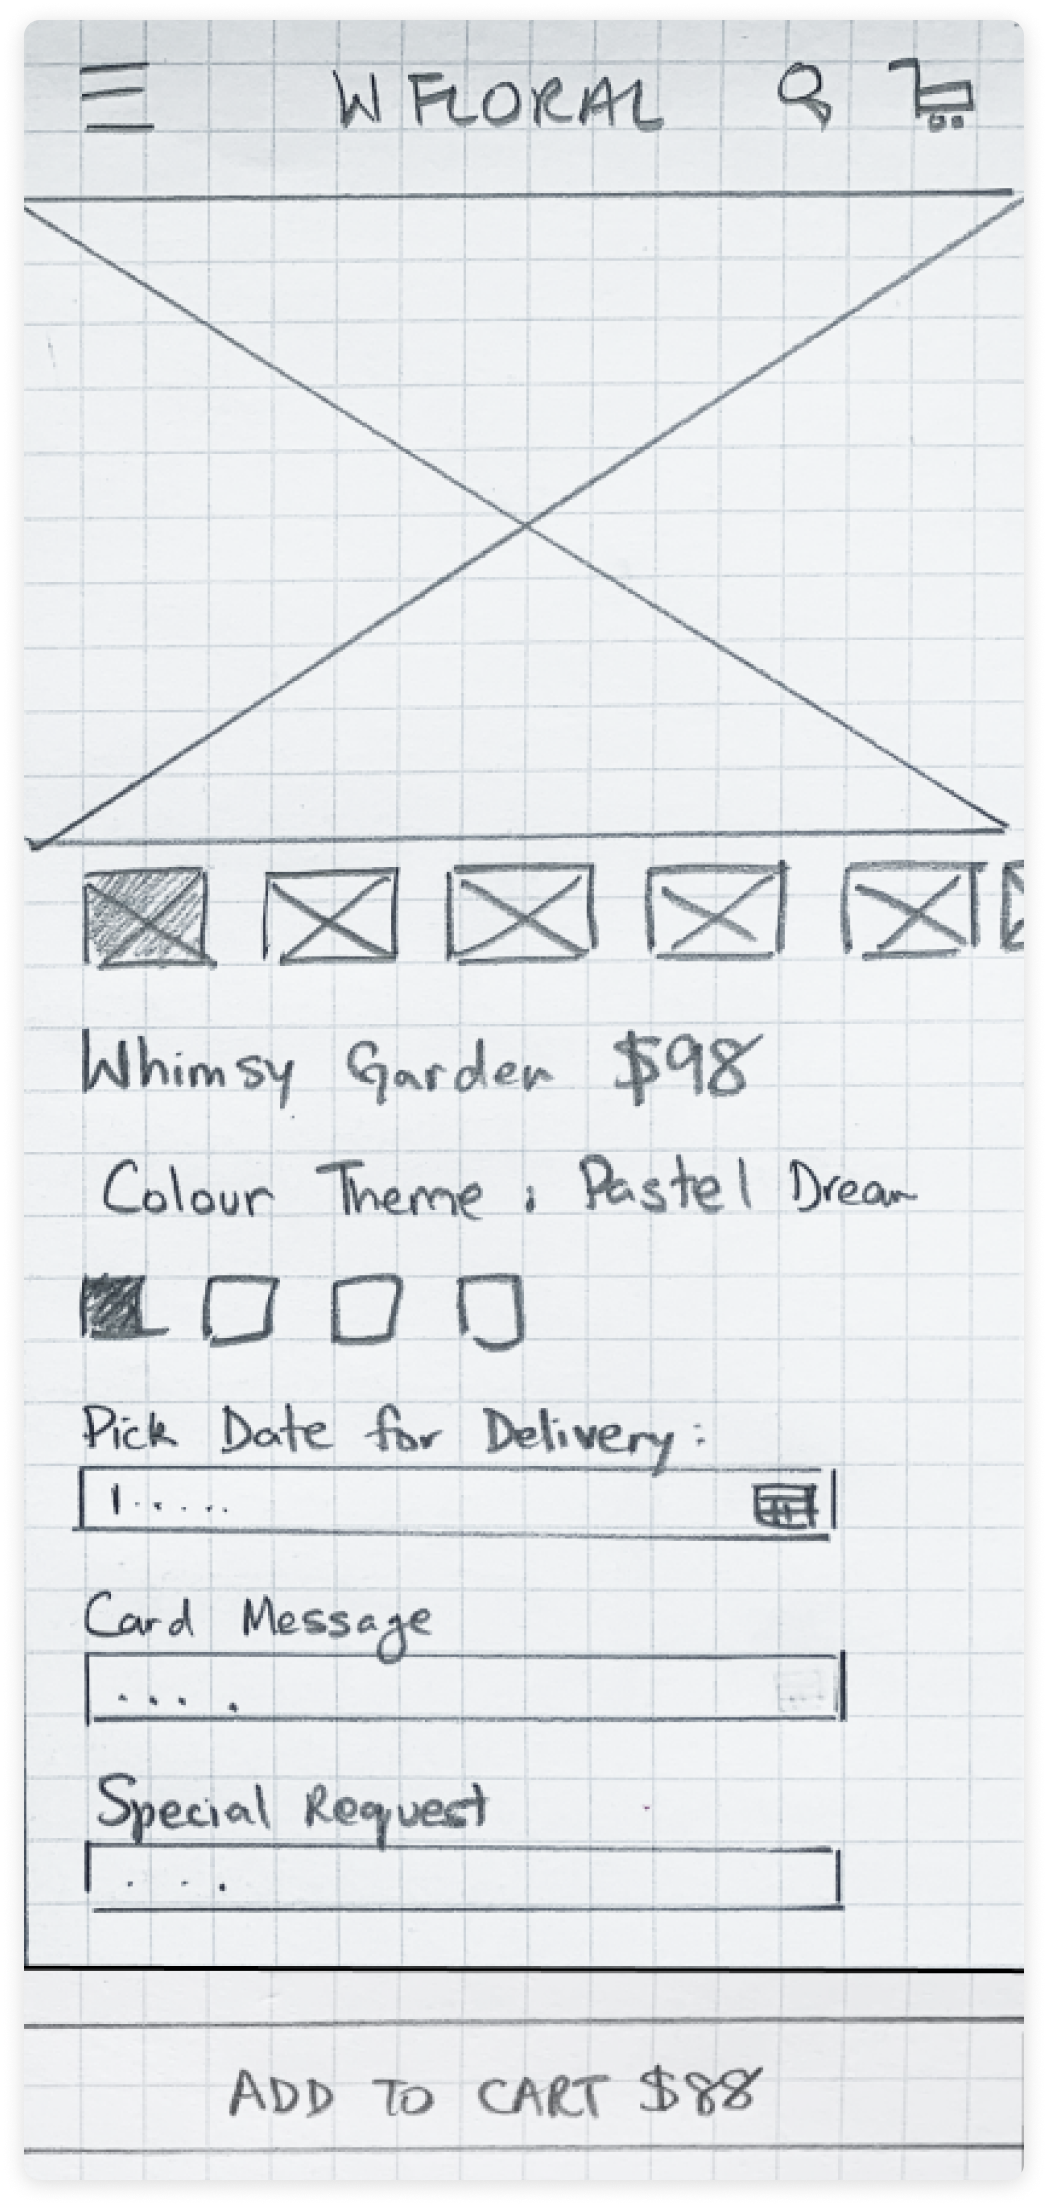 W FLORAL
Whimsy Garden $98
Colour Theme : Pastel Dream
Pick Date for Delivery:
Card Message
Special Request
ADD TO CART $88